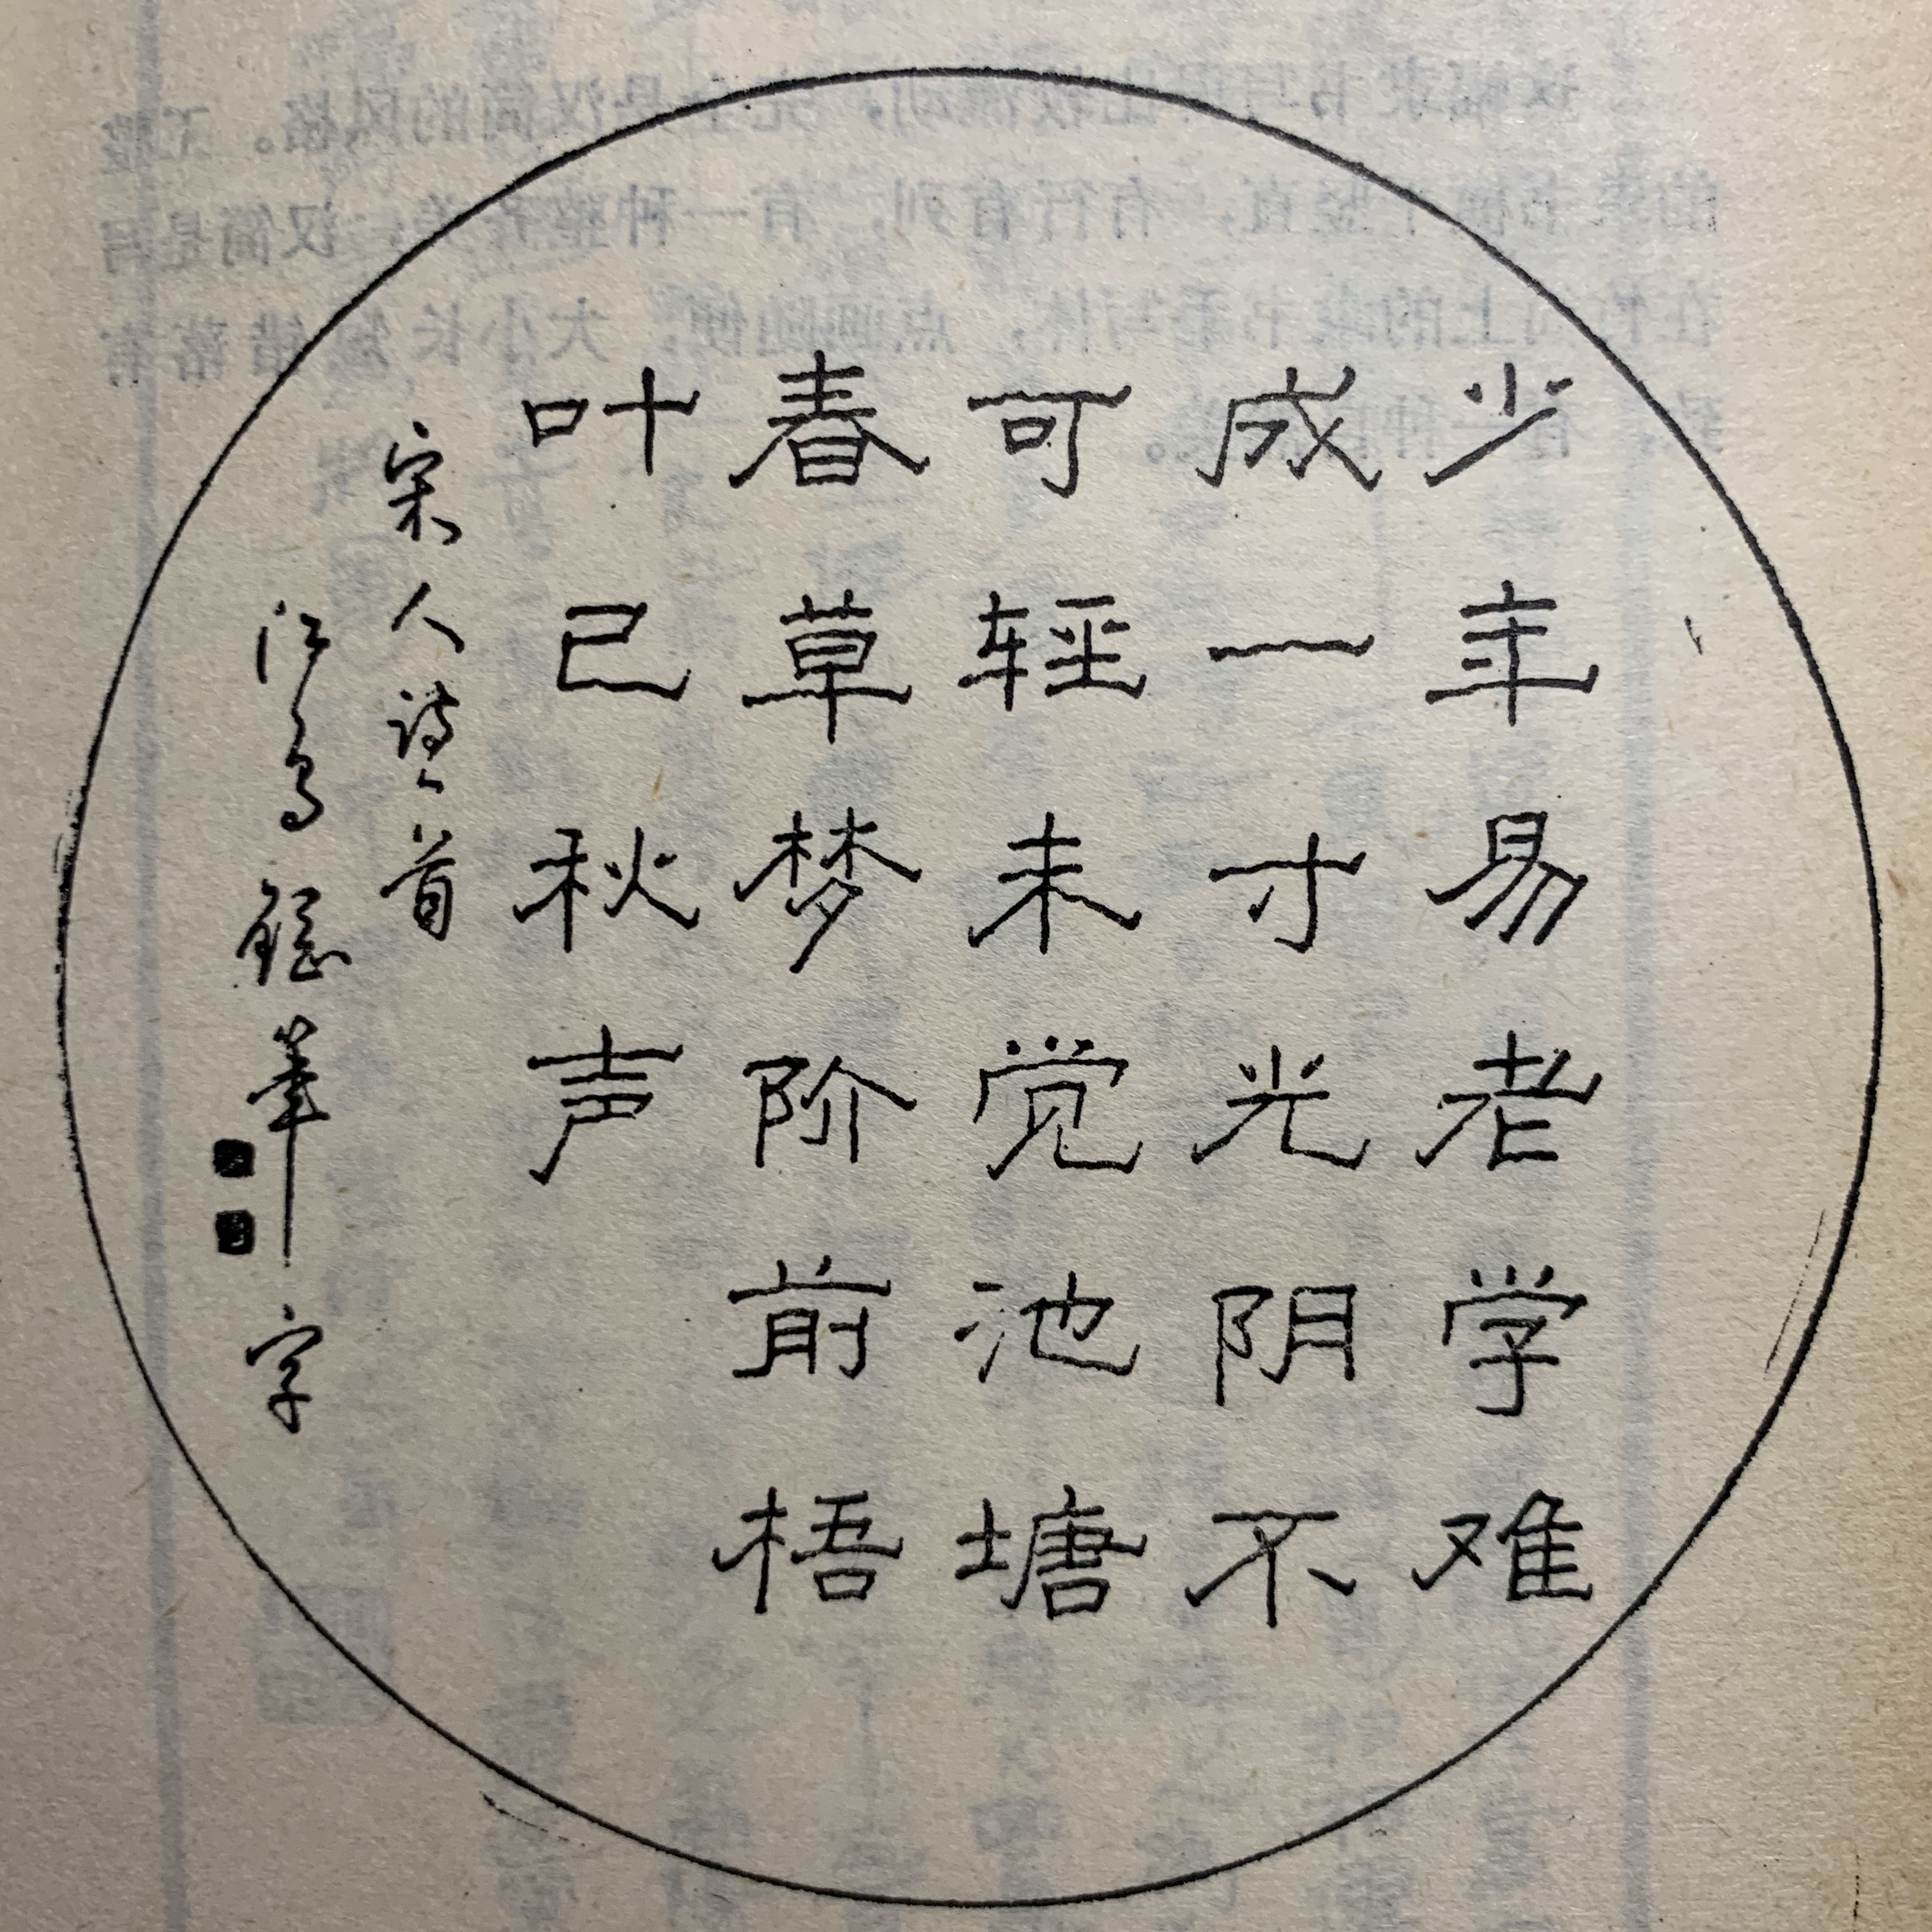 少年易老学难
成一寸光阴不
可轻未觉池塘
春草梦阶前梧
叶已秋声
宋人诗一首
江鸟 笔字